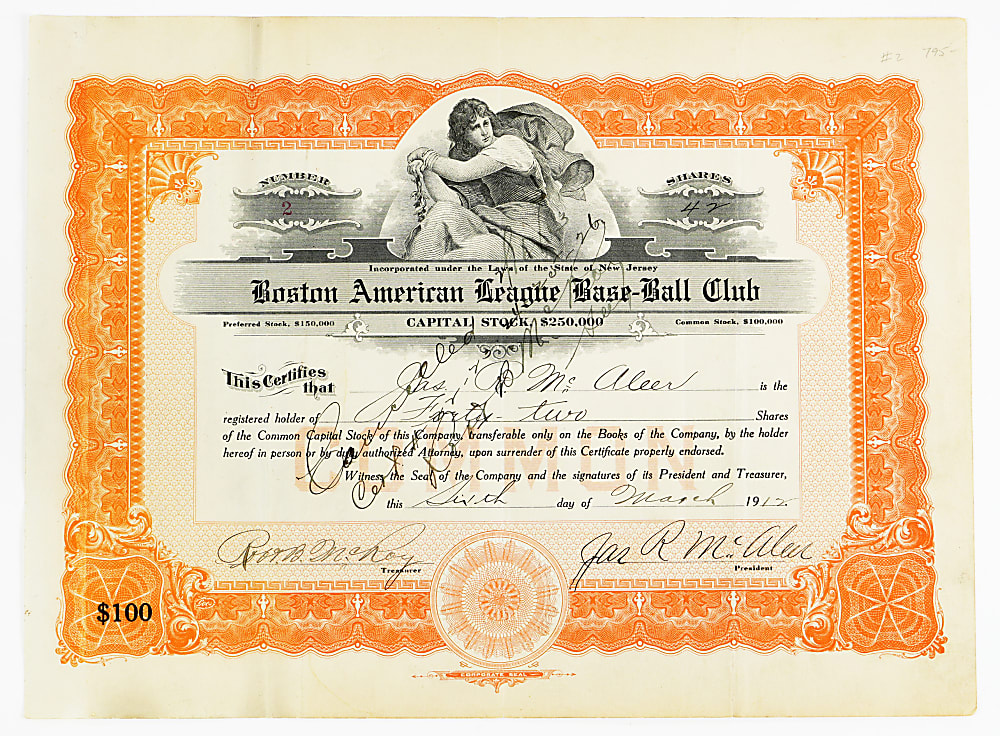 #2 795-
NUMBER
2
SHARES
42
Incorporated under the Laws of the State of New Jersey
Boston American League Base-Ball Club
Preferred Stock, $150,000 CAPITAL STOCK, $250,000 Common Stock, $100,000
This Certifies that Jas. R. McAleer is the
registered holder of Forty-two Shares
of the Common Capital Stock of this Company, transferable only on the Books of the Company, by the holder
hereof in person or by duly authorized Attorney, upon surrender of this Certificate properly endorsed.
Witness the Seal of the Company and the signatures of its President and Treasurer,
this Sixth day of March 1912
COMMON
Cancelled
Robt B. McRoy
Treasurer
Jas R McAleer
President
$100
CORPORATE SEAL